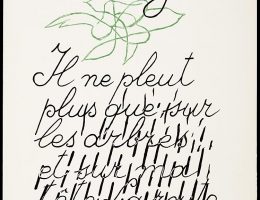 Il ne pleut
plus que sur
les arbres
et sur ma
tête